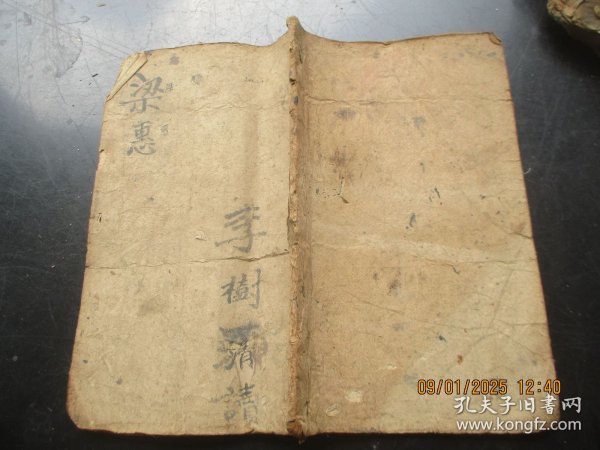 梁惠
李樹清讀
09/01/2025 12:40
孔夫子旧书网
www.kongfz.com